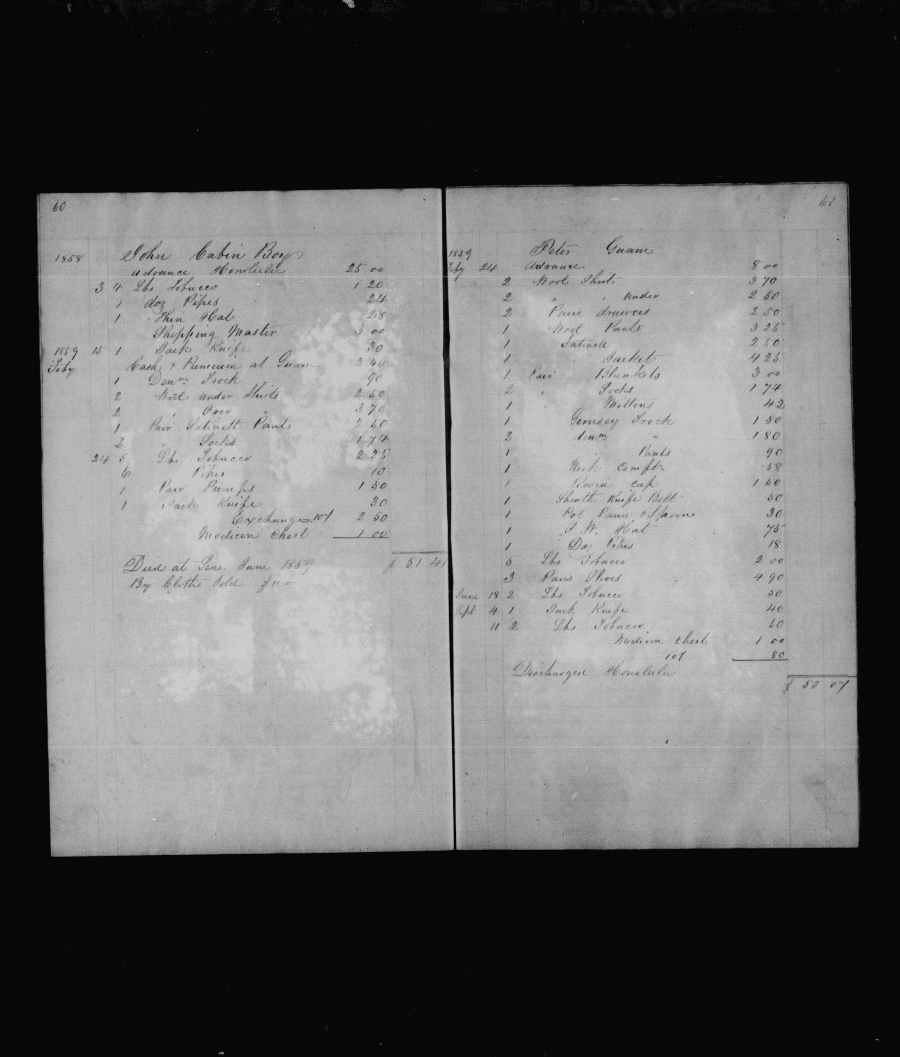 60
1858 John Cabin Boy
Advance Honolulu 25 00
3 4 Lbs Tobacco 1 20
1 doz Pipes 24
1 Thin Hat 28
Shopping Master 3 00
1859 15 1 Jack Knife 30
Feby Cash & Premium at Guam 2 40
1 Denm Frock 90
2 Wool under Shirts 2 50
2 " Over " 3 70
1 Pair Satinett Pants 2 50
2 " Socks 1 74
24 5 Lbs Tobacco 2 25
6 Pipes 10
1 Pair Pumps 1 50
1 Jack Knife 30
Exchange 10% 2 50
Medicin Chest 1 00
$ 51 41
Died at Sea June 1859
By Cloths Sold
61
1859 Peter Guam
Feby 24 Advance 8 00
2 Wool Shirts 3 70
2 " " Under 2 50
2 Pairs drawers 2 50
1 Wool Pants 3 25
1 Satinett 2 50
1 " Jacket 4 25
1 Pair Blankets 3 00
2 " Socks 1 74
1 " Mittens 42
1 Gernsey Frock 1 50
2 denm " 1 80
1 " Pants 90
1 Neck Comft 58
1 cap 1 50
1 Sheath Knife Belt 50
1 Pot Pann & Spoon 30
1 S. W. Hat 75
1 Doz Pipes 18
5 Lbs Tobacco 2 00
3 Pairs Shoes 4 90
June 18 2 Lbs Tobacco 50
Sept 4 1 Jack Knife 40
11 2 Lbs Tobacco 50
Medicin Chest 1 00
10% 80
Discharged Honolulu
$ 50 07